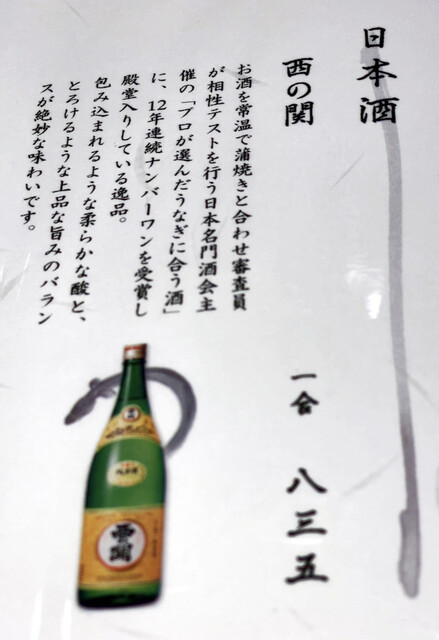 日本酒
西の関
一合 八三五
お酒を常温で蒲焼きと合わせ審査員
が相性テストを行う日本名門酒会主
催の「プロが選んだうなぎに合う酒」
に、12年連続ナンバーワンを受賞し
殿堂入りしている逸品。
包み込まれるような柔らかな酸と、
とろけるような上品な旨みのバラン
スが絶妙な味わいです。
西関